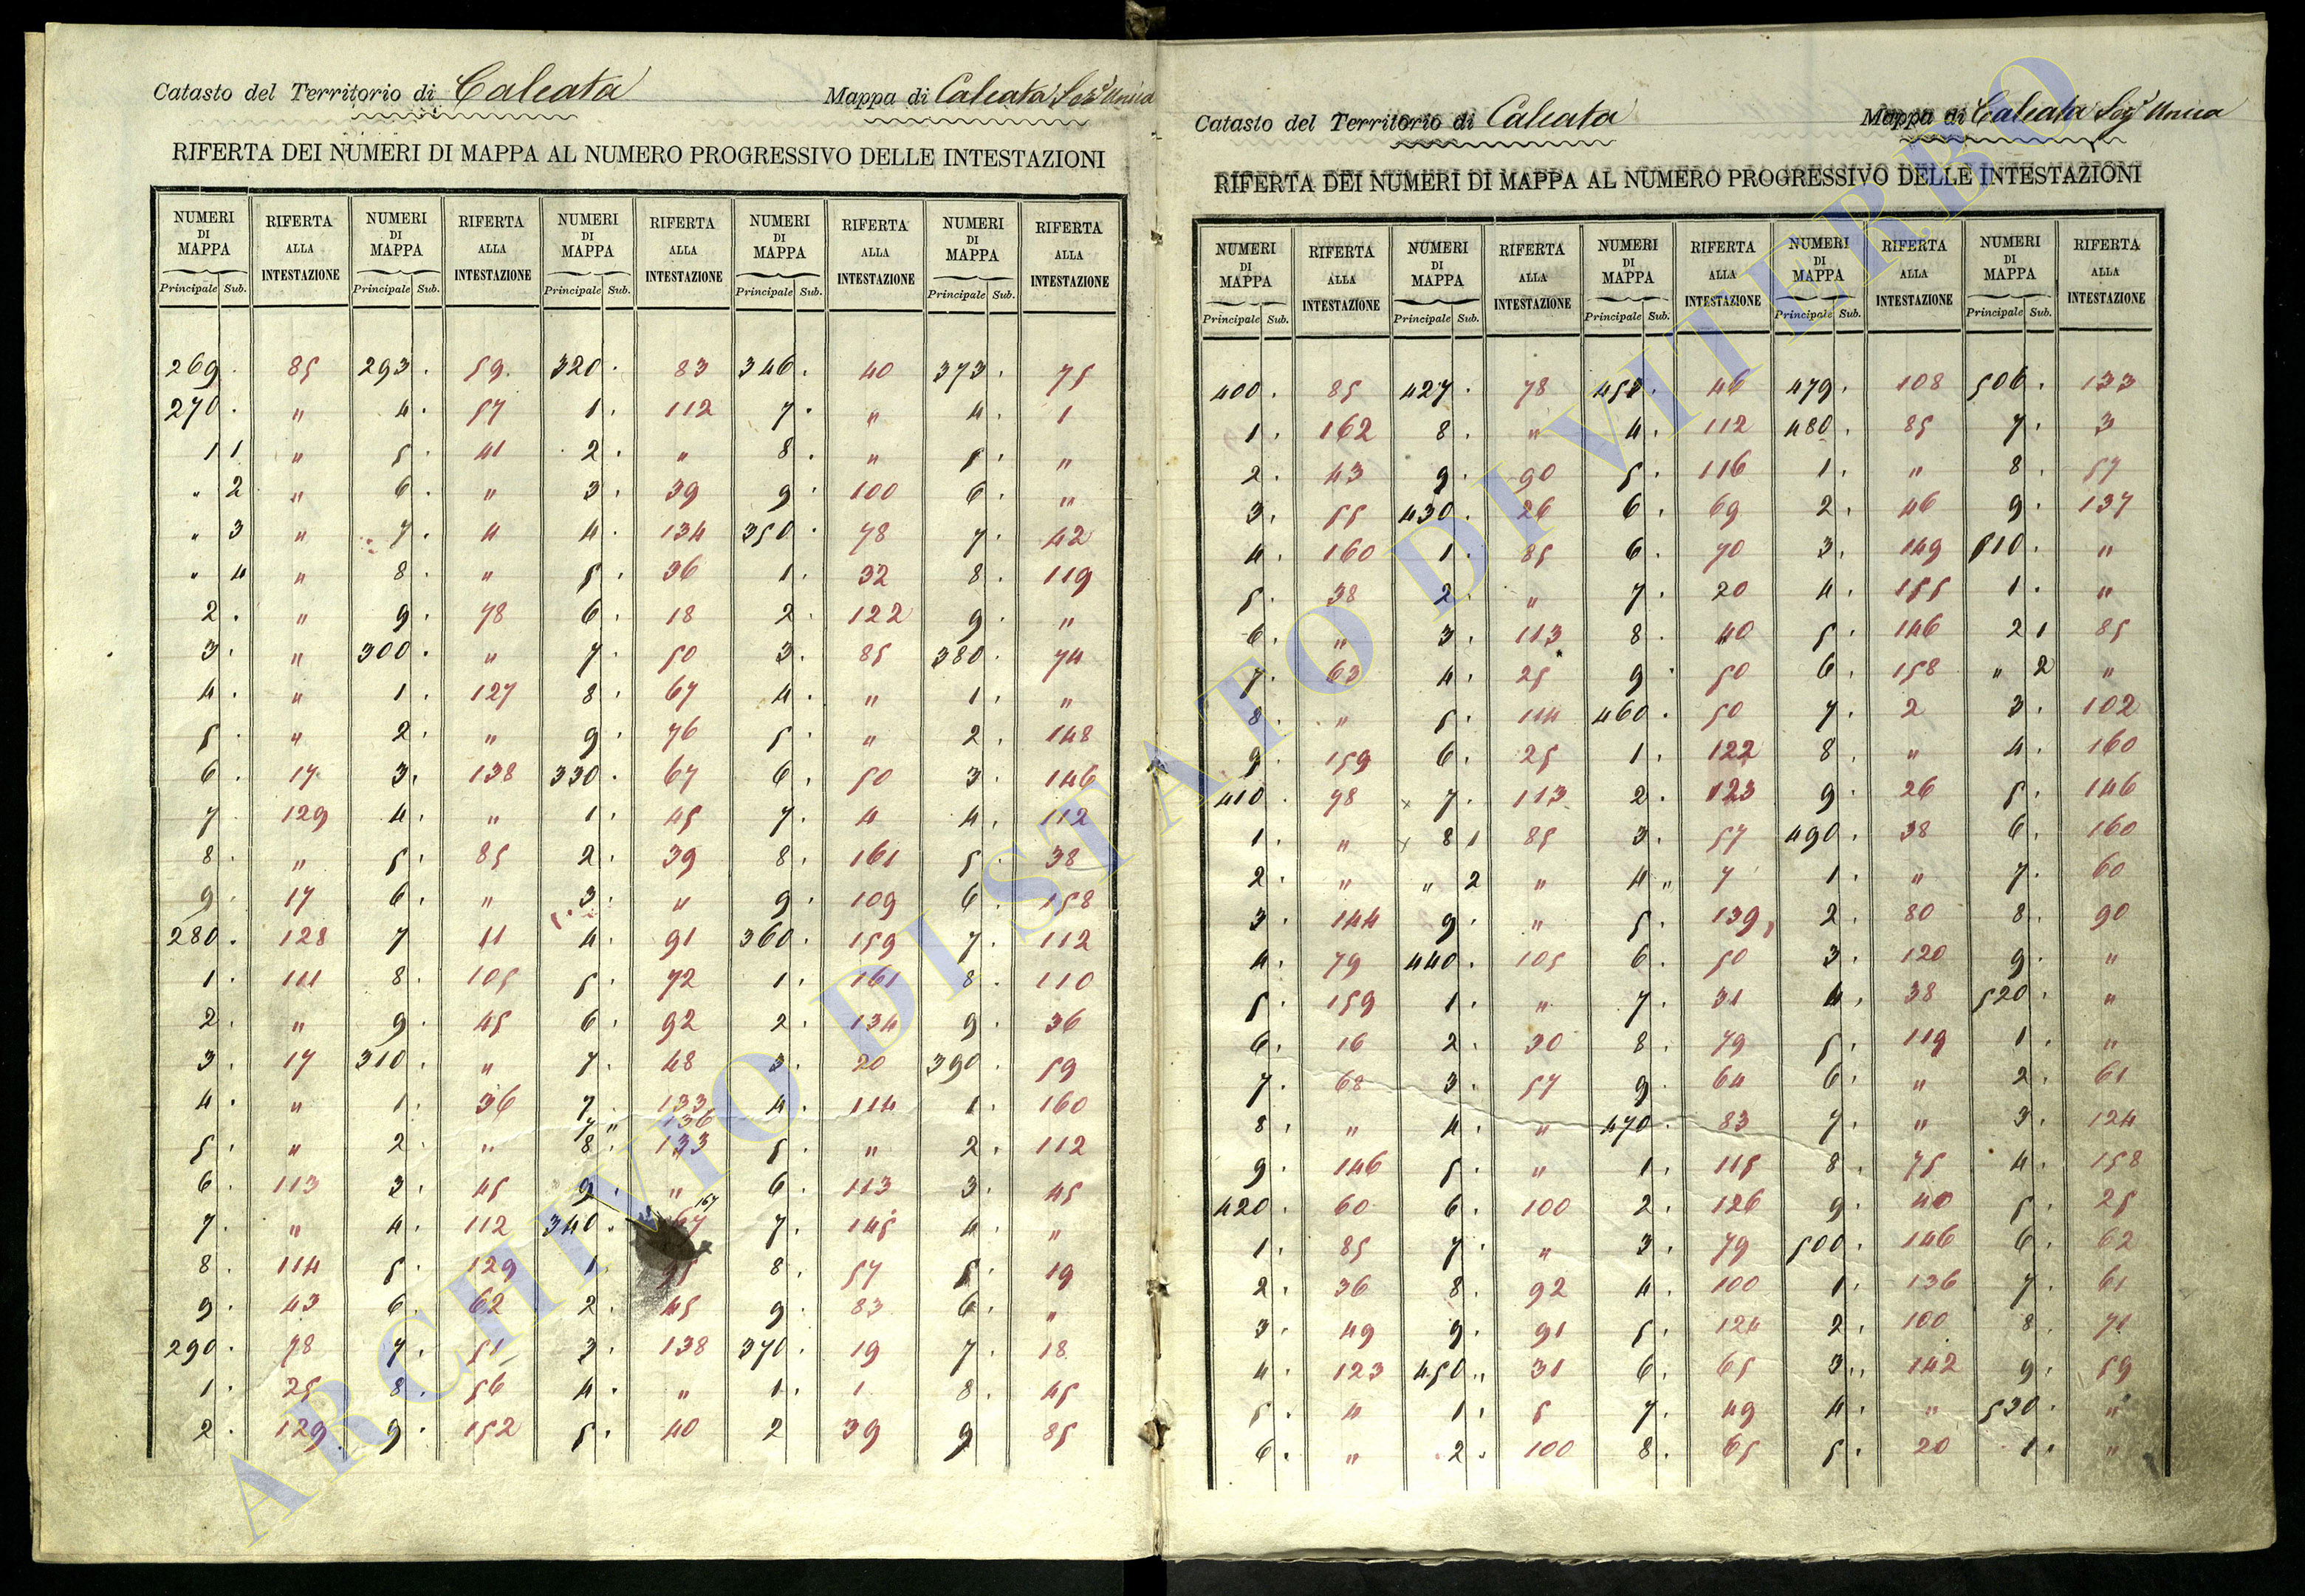 Catasto del Territorio di Calcata Mappa di Calcata Sez. Unica
RIFERTA DEI NUMERI DI MAPPA AL NUMERO PROGRESSIVO DELLE INTESTAZIONI
NUMERI DI MAPPA RIFERTA ALLA INTESTAZIONE NUMERI DI MAPPA RIFERTA ALLA INTESTAZIONE NUMERI DI MAPPA RIFERTA ALLA INTESTAZIONE NUMERI DI MAPPA RIFERTA ALLA INTESTAZIONE NUMERI DI MAPPA RIFERTA ALLA INTESTAZIONE
Principale Sub. Principale Sub. Principale Sub. Principale Sub. Principale Sub.
269. 85 293. 59 320. 83 346. 40 373. 75
270. " 4. 57 1. 112 7. " 4. 1
1 1 " 5. 41 2. " 8. " 5. "
" 2 " 6. " 3. 39 9. 100 6. "
" 3 " 7. 4 4. 134 350. 78 7. 42
" 4 " 8. " 5. 36 1. 32 8. 119
2. " 9. 78 6. 18 2. 122 9. "
3. " 300. " 7. 50 3. 85 380. 74
4. " 1. 127 8. 67 4. " 1. "
5. " 2. " 9. 76 5. " 2. 148
6. 17 3. 138 330. 67 6. 50 3. 146
7 129 4. " 1. 45 7. 4 4. 112
8. " 5. 85 2. 39 8. 161 5. 38
9. 17 6. " 3. " 9. 109 6. 158
280. 128 7 11 4. 91 360. 159 7. 112
1. 111 8. 105 5. 72 1. 161 8. 110
2. " 9. 45 6. 92 2. 134 9. 36
3. 17 310. " 7. 48 3. 20 390. 59
4. " 1. 36 7 133 4. 114 1. 160
7 " 136
5. " 2. " 8. 133 5. " 2. 112
6. 113 3. 45 9. " 6. 113 3. 45
7. " 4. 112 340. 67 167 7. 145 4. "
8. 114 5. 129 1. 8. 57 5. 19
9. 43 6. 62 2. 45 9. 83 6. "
290. 78 7. 51 3. 138 370. 19 7. 18
1. 25 8. 56 4. " 1. 1 8. 45
2. 129 9. 152 5. 40 2 39 9 85
Catasto del Territorio di Calcata Mappa di Calcata Sez. Unica
RIFERTA DEI NUMERI DI MAPPA AL NUMERO PROGRESSIVO DELLE INTESTAZIONI
NUMERI DI MAPPA RIFERTA ALLA INTESTAZIONE NUMERI DI MAPPA RIFERTA ALLA INTESTAZIONE NUMERI DI MAPPA RIFERTA ALLA INTESTAZIONE NUMERI DI MAPPA RIFERTA ALLA INTESTAZIONE NUMERI DI MAPPA RIFERTA ALLA INTESTAZIONE
Principale Sub. Principale Sub. Principale Sub. Principale Sub. Principale Sub.
400. 85 427. 78 46 479. 108 506. 133
1. 162 8. " 4. 112 480. 85 7. 3
2. 43 9. 90 5. 116 1. " 8. 57
3. 55 430. 26 6. 69 2. 46 9. 137
4. 160 1. 85 6. 70 3. 149 510. "
5. 38 2. " 7. 20 4. 155 1. "
6. " 3. 113 8. 40 5. 146 2 1 85
7. 63 4. 25 9. 50 6. 158 " 2 "
8. " 5. 114 460. 50 7. 2 3. 102
9. 159 6. 25 1. 122 8. " 4. 160
410. 78 x 7. 113 2. 123 9. 26 5. 146
1. " x 8 1 85 3. 57 490. 38 6. 160
2. " " 2 " 4 " 7 1. " 7. 60
3. 144 9. " 5. 139 2. 80 8. 90
4. 79 440. 105 6. 50 3. 120 9. "
5. 159 1. " 7. 31 4. 38 520. "
6. 16 2. 30 8. 79 5. 119 1. "
7. 68 3. 57 9. 64 6. " 2. 61
8. " 4. " 470. 83 7. " 3. 124
9. 146 5. " 1. 115 8. 75 4. 158
420. 60 6. 100 2. 126 9. 40 5. 25
1. 85 7. " 3. 79 500. 146 6. 62
2. 36 8. 92 4. 100 1. 136 7. 61
3. 49 9. 91 5. 124 2. 100 8. 71
4. 123 450. 31 6. 65 3. 142 9. 59
5. 4 1. 5 7. 49 4. " 530. "
6. " 2. 100 8. 65 5. 20 1. "
ARCHIVIO DI STATO DI VITERBO